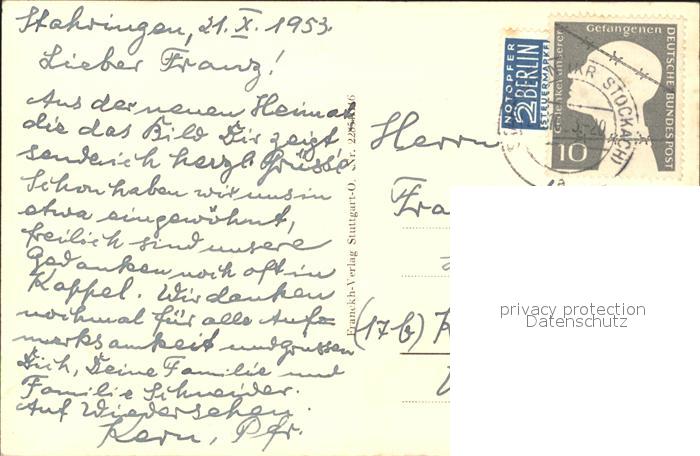 Stahringen, 21. X. 1953.
Lieber Franz!
Aus der neuen Heimat
die das Bild Dir zeigt
sende ich herzl. Grüsse
Schon haben wir uns in
etwa eingewöhnt,
freilich sind unsere
Gedanken noch oft in
Kappel. Wir danken
nochmal für alle Auf=
merksamkeit und grüssen
Dich, Deine Familie und
Familie Schneider.
Auf Wiedersehen.
Kern, Pfr.
Franckh-Verlag Stuttgart-O.
Herrn
Fra
(17b)
NOTOPFER
2 BERLIN
STEUERMARKE
Gedenket unserer
Gefangenen
DEUTSCHE BUNDESPOST
10
KR STOCKACH)
privacy protection
Datenschutz